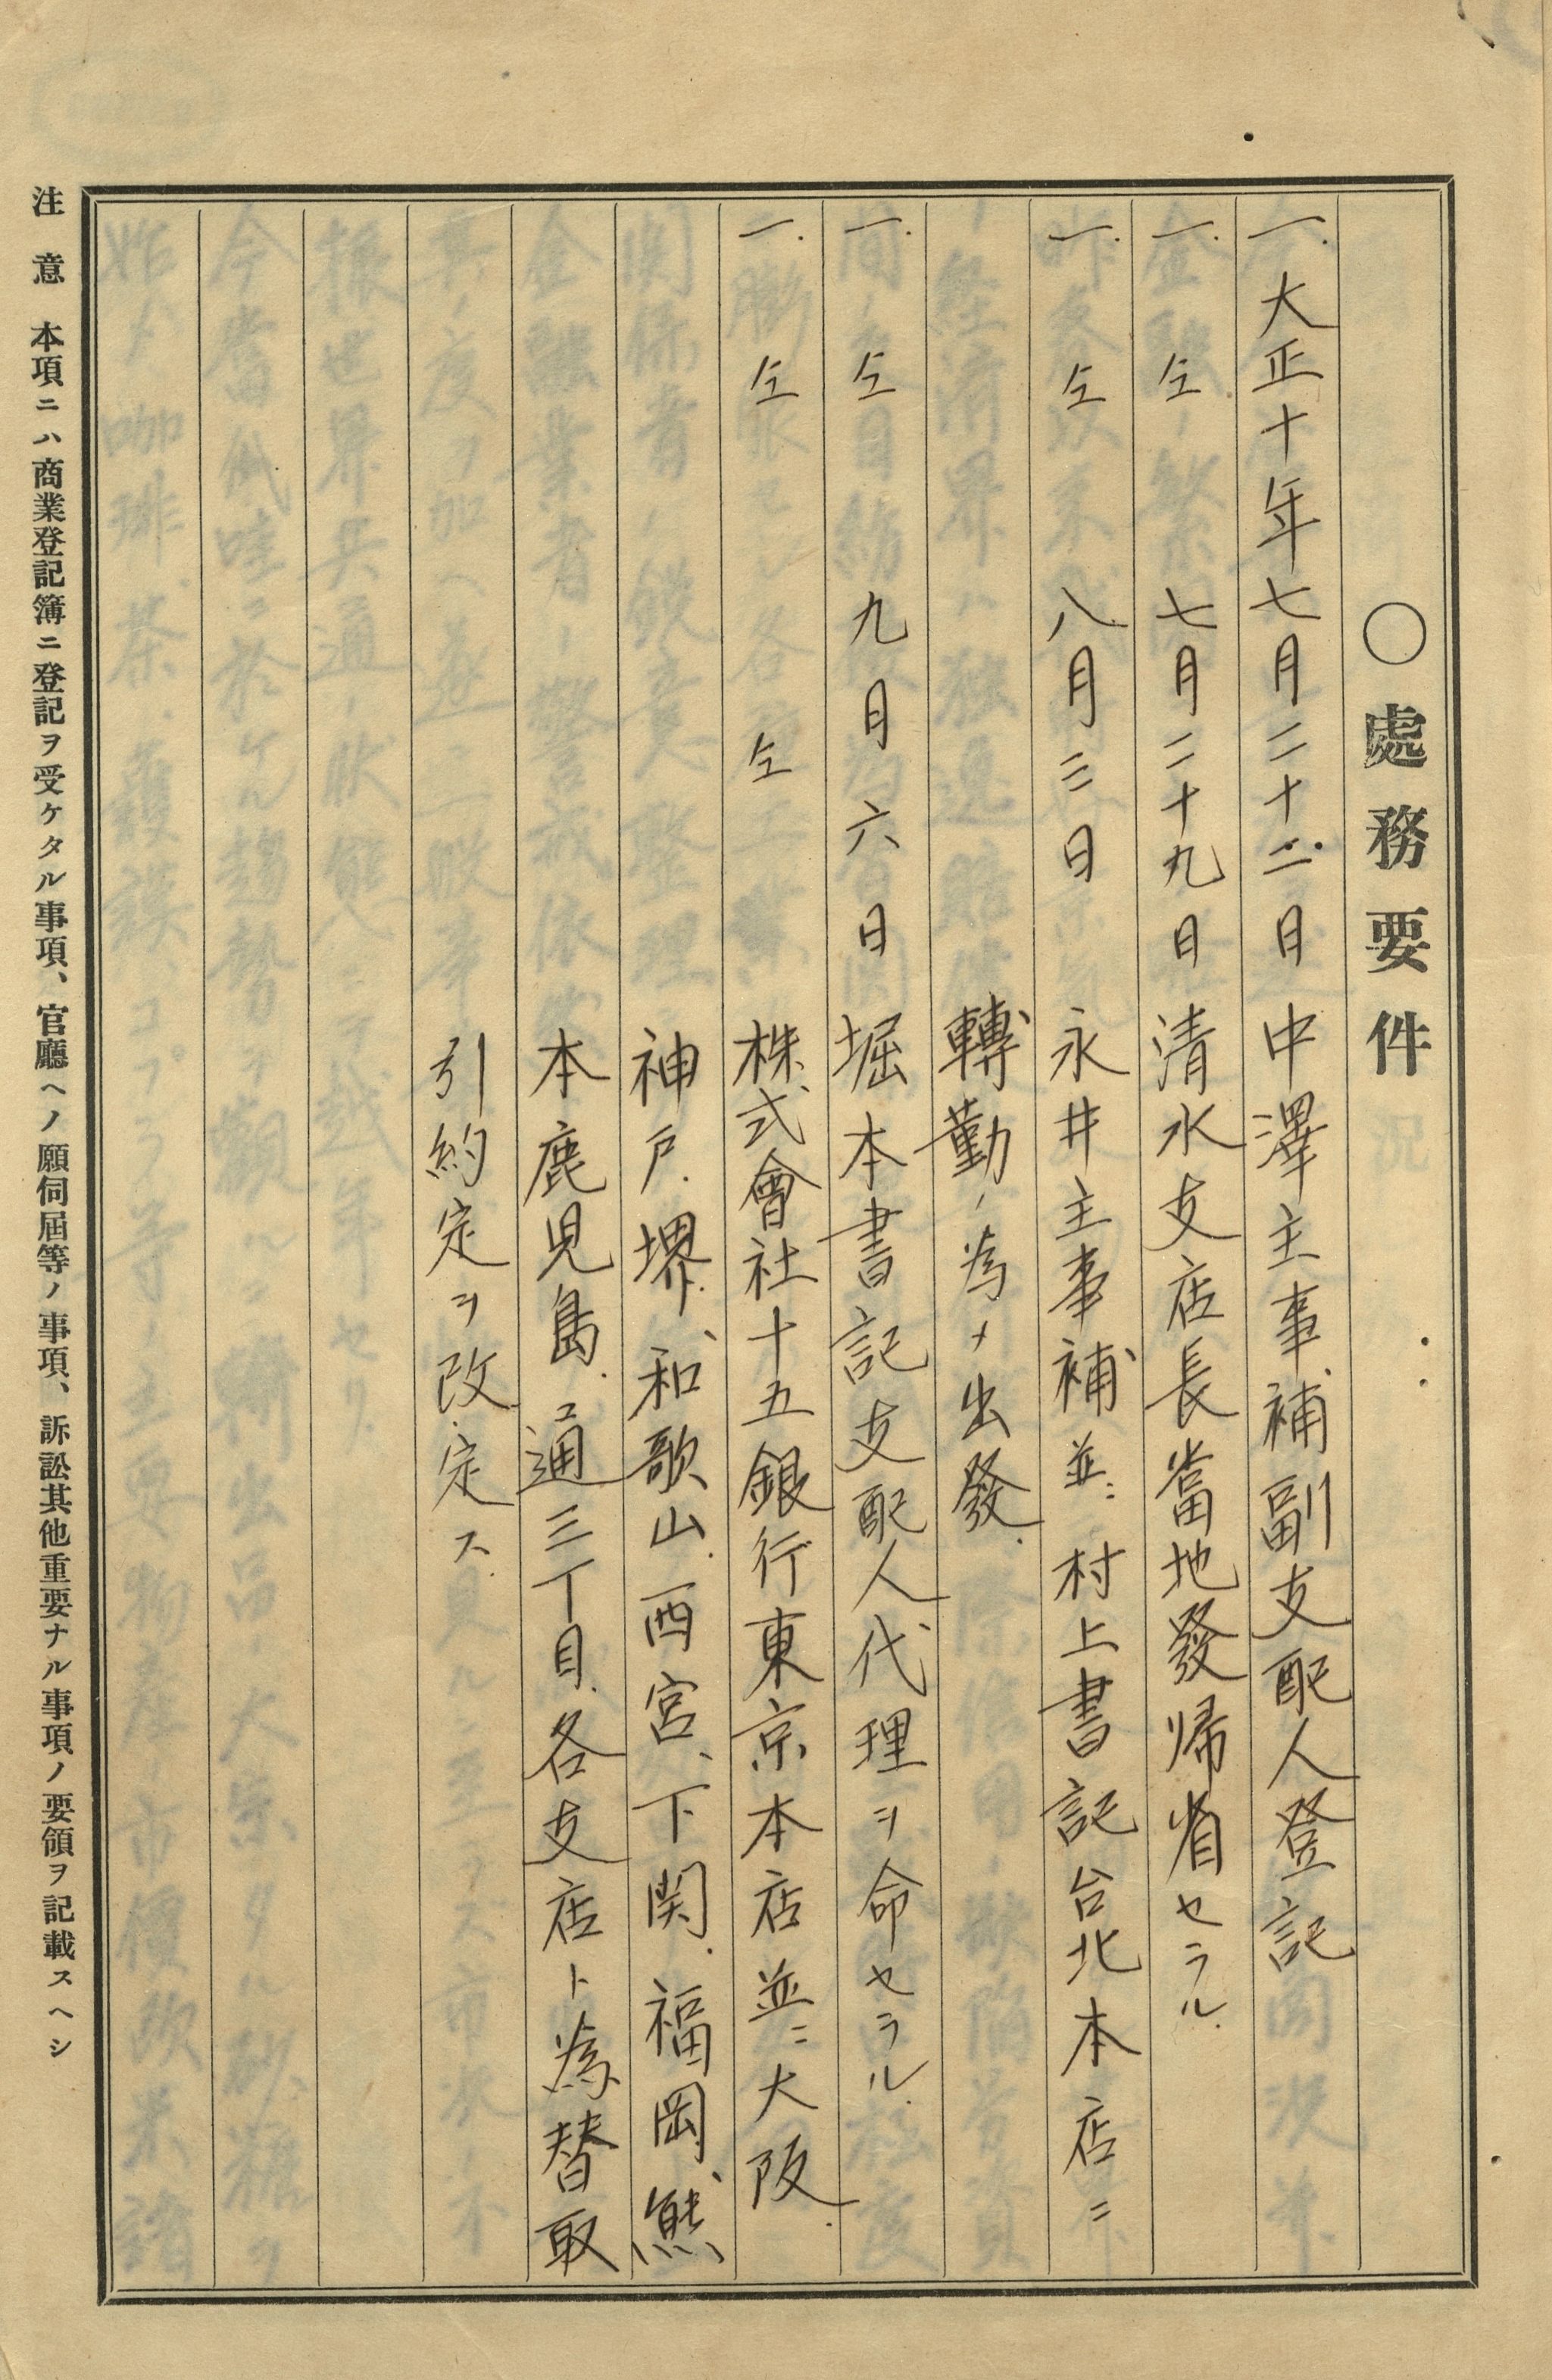 〇處務要件
一、大正十年七月二十二日 中澤主事補副支配人登記
一、仝 七月二十九日 清水支店長當地發帰省セラル、
一、仝 八月三日 永井主事補並ニ村上書記台北本店ニ
轉勤ノ為メ出發、
一、仝 九月六日 堀本書記支配人代理ヲ命セラル、
一、仝 仝 株式會社十五銀行東京本店並ニ大阪、
神戸、堺、和歌山、西宮、下関、福岡、熊
本鹿児島、通三丁目、各支店ト為替取
引約定ヲ改定ス、
注意 本項ニハ商業登記簿ニ登記ヲ受ケタル事項、官廳ヘノ願伺屆等ノ事項、訴訟其他重要ナル事項ノ要領ヲ記載スヘシ